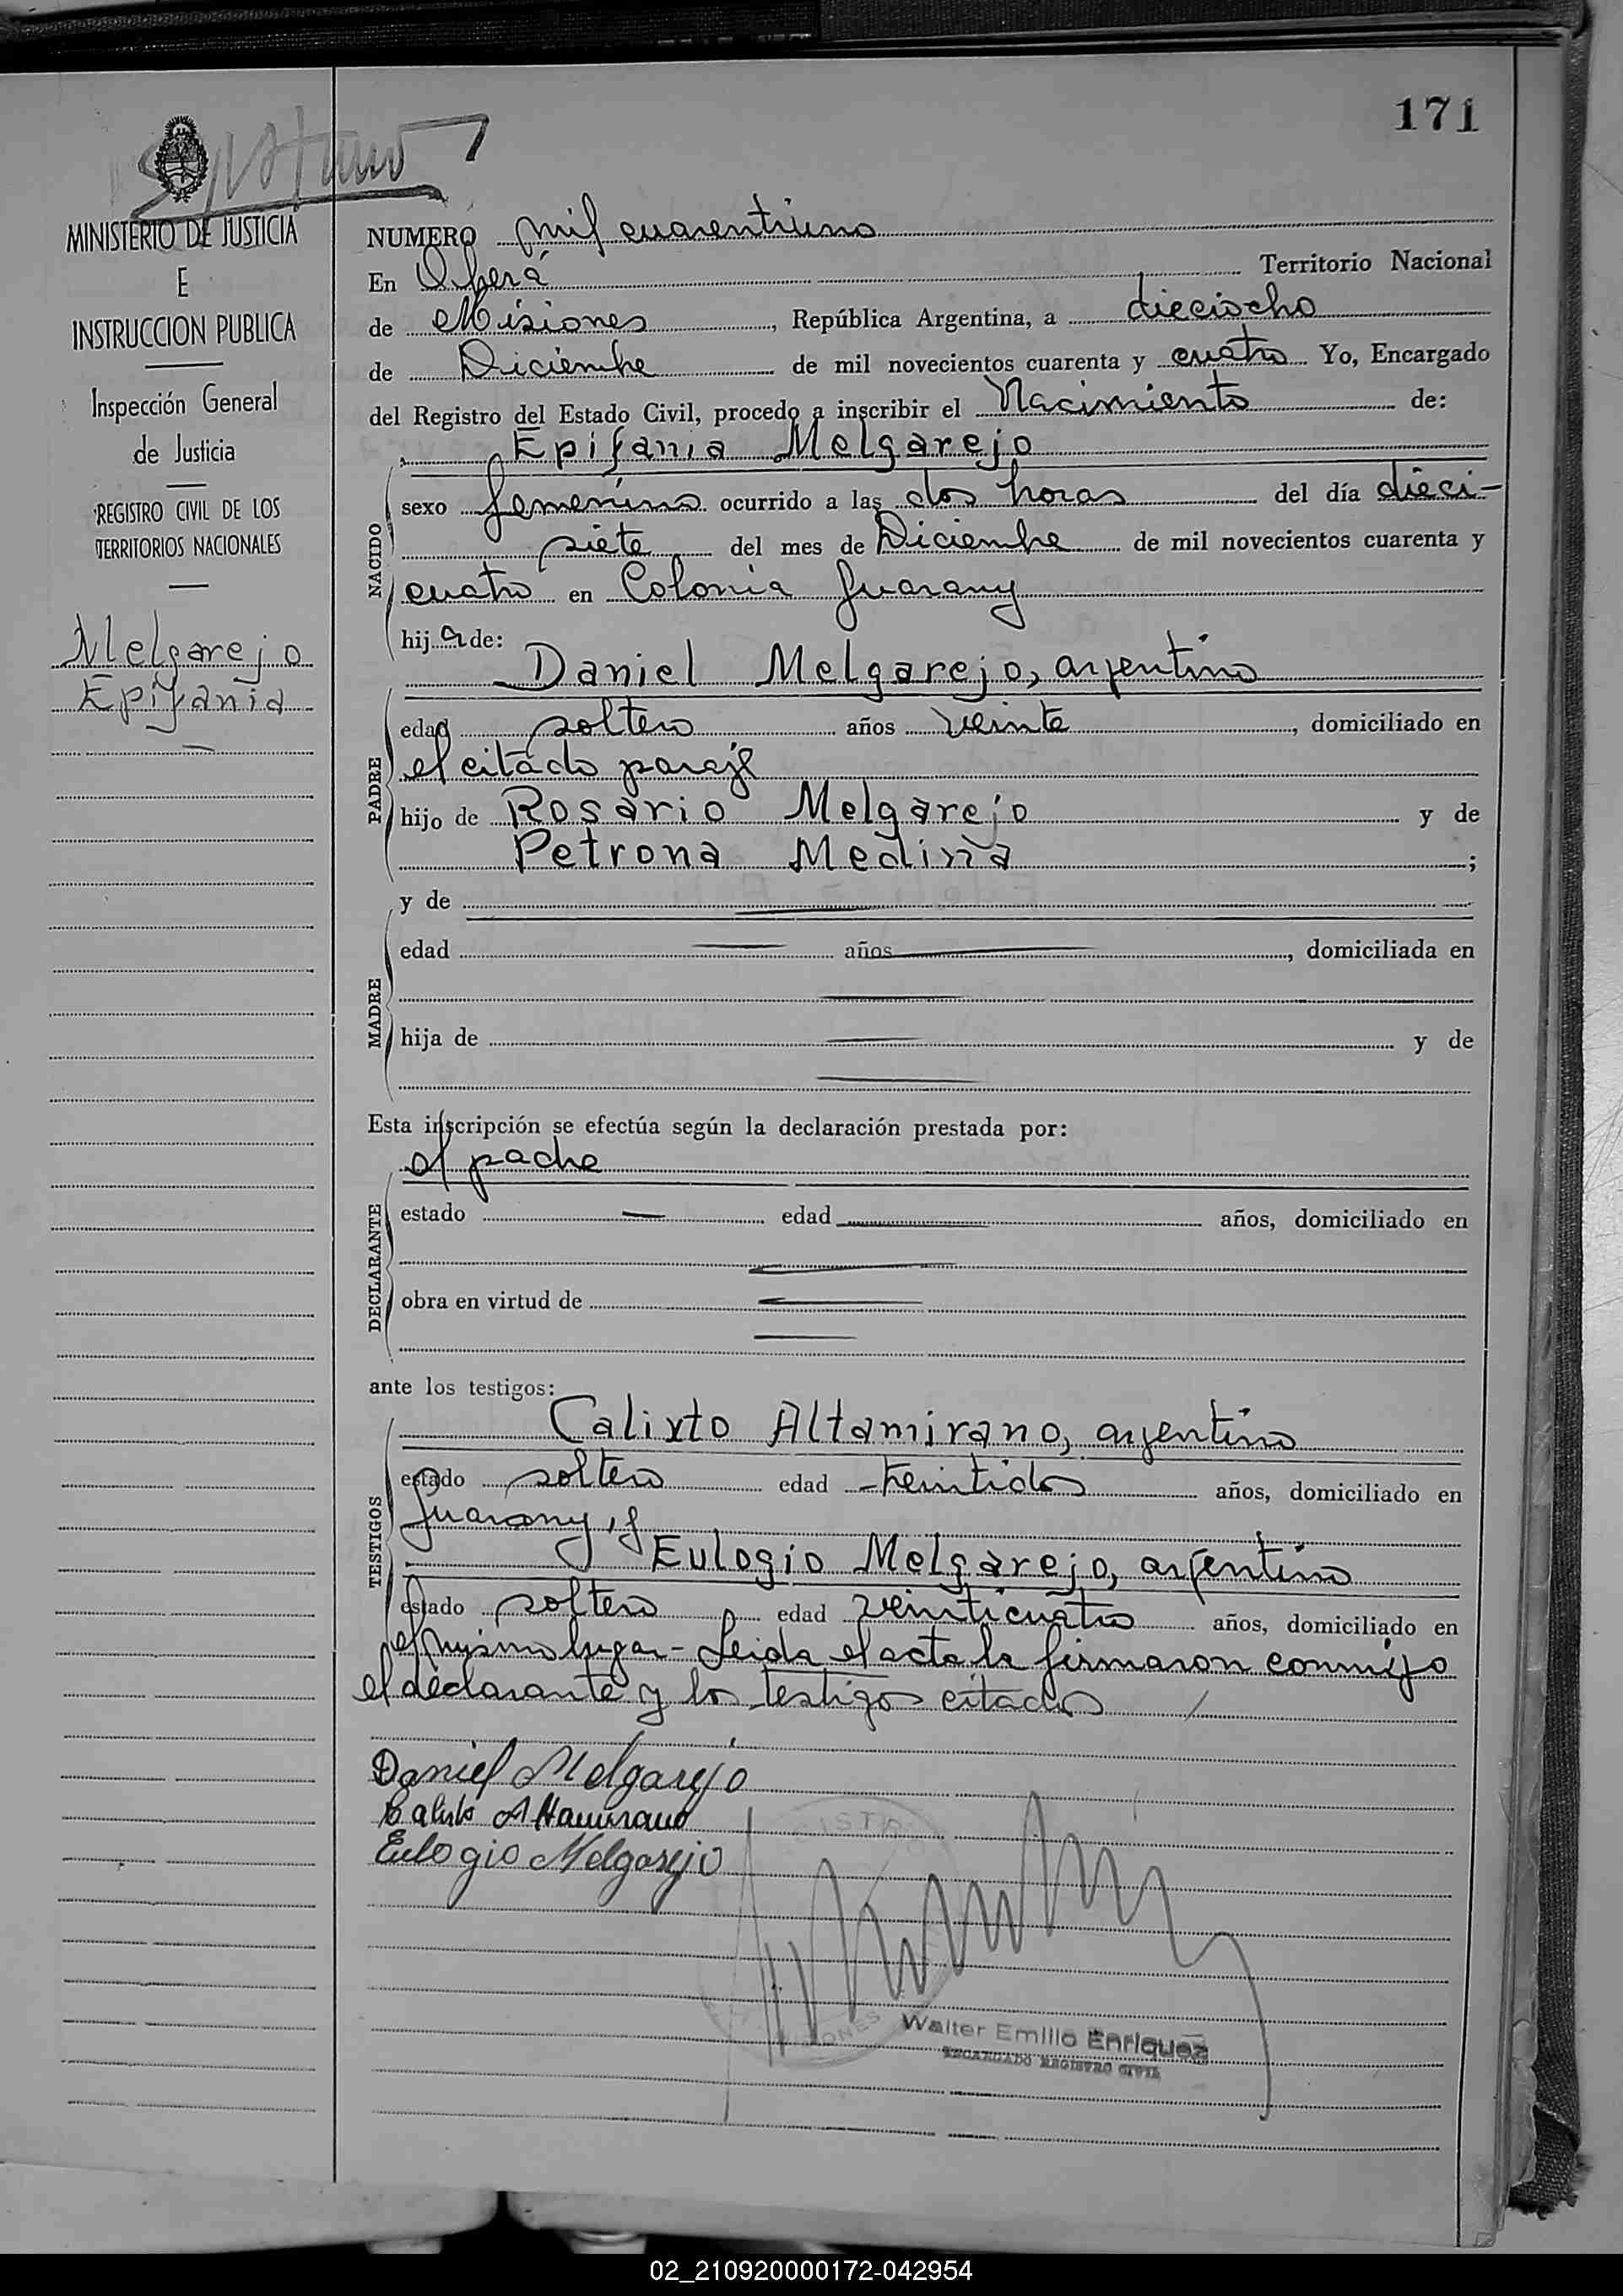 171
MINISTERIO DE JUSTICIA
E
INSTRUCCION PUBLICA
Inspección General
de Justicia
REGISTRO CIVIL DE LOS
TERRITORIOS NACIONALES
Melgarejo
Epifania
NUMERO mil cuarentiuno
En Oberá Territorio Nacional
de Misiones, República Argentina, a dieciocho
de Diciembre de mil novecientos cuarenta y cuatro Yo, Encargado
del Registro del Estado Civil, procedo a inscribir el Nacimiento de:
Epifania Melgarejo
NACIDO
sexo femenino ocurrido a las dos horas del día dieci-
siete del mes de Diciembre de mil novecientos cuarenta y
cuatro en Colonia Guarany
hija de:
Daniel Melgarejo, argentino
PADRE
edad soltero años veinte, domiciliado en
el citado paraje
hijo de Rosario Melgarejo y de
Petrona Medina;
y de
MADRE
edad años, domiciliada en
hija de y de
Esta inscripción se efectúa según la declaración prestada por:
el padre
DECLARANTE
estado edad años, domiciliado en
obra en virtud de
ante los testigos:
TESTIGOS
Calixto Altamirano, argentino
estado soltero edad treintidos años, domiciliado en
Guarany, y
Eulogio Melgarejo, argentino
estado soltero edad veinticuatro años, domiciliado en
el mismo lugar - Leida el acta la firmaron conmigo
el declarante y los testigos citados
Daniel Melgarejo
Calisto Altamirano
Eulogio Melgarejo
Walter Emilio Enriquez
ENCARGADO REGISTRO CIVIL
02_210920000172-042954